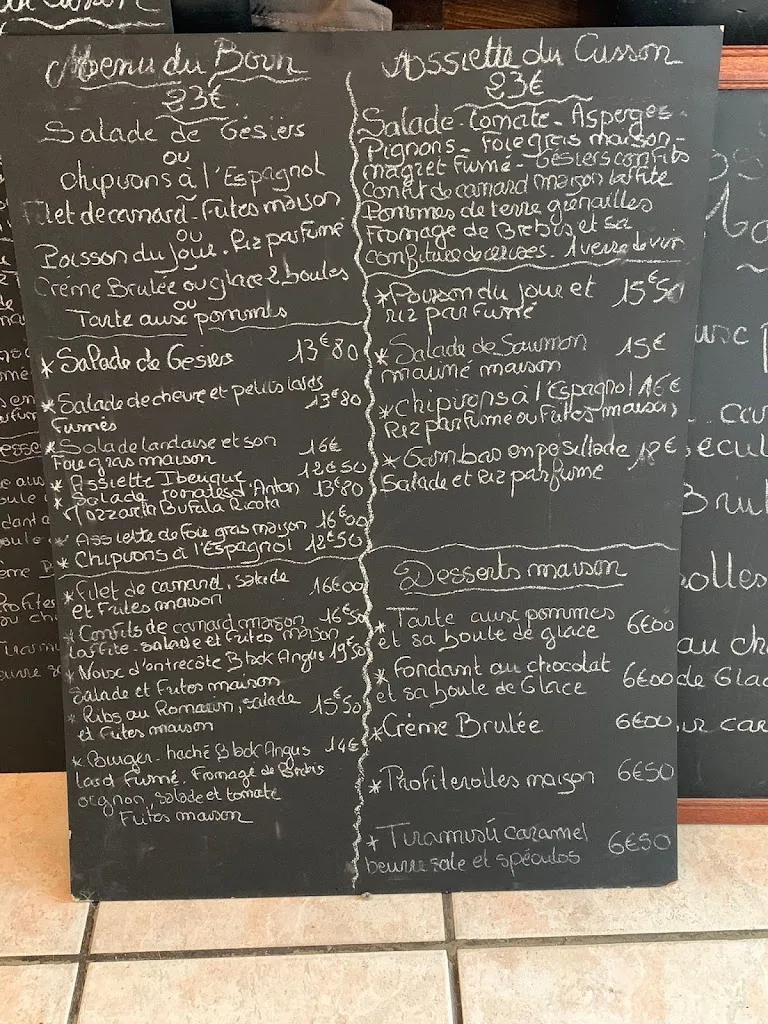 Menu du Born
23€
Salade de Gésiers
ou
chipirons à l'Espagnol
Filet de canard - Frites maison
ou
Poisson du jour. Riz parfumé
Crème Brulée ou glace 2 boules
ou
Tarte aux pommes
* Salade de Gesiers 13€80
* Salade de chevre et petits lards 13€80
fumés
* Salade landaise et son 16€
Foie gras maison
* Assiette Iberique 12€50
* Salade Tomates d'Antan 13€80
Mozzarella Bufala Ricota
* Assiette de foie gras maison 16€00
* Chipirons à l'Espagnol 12€50
* Filet de canard, salade 16€00
et Frites maison
* Confits de canard maison 16€50
Laffite - salade et Frites maison
* Noix d'entrecôte Black Angus 19€50
Salade et Frites maison
* Ribs au Romarin, salade 15€50
et Frites maison
* Burger - haché Black Angus 14€
lard fumé. Fromage de Brebis
oignon, salade et tomate
Frites maison
Assiette du Cusson
23€
Salade - tomate - Asperges -
Pignons - Foie gras maison -
magret fumé - Gésiers confits
confit de canard maison laffite
Pommes de terre grenailles
Fromage de Brebis et sa
confiture de cerises. 1 verre de vin
* Poisson du jour et 15€50
riz parfumé
* Salade de Saumon 15€
mariné maison
* Chipirons à l'Espagnol 16€
Riz parfumé ou Frites maison
* Gambas en persillade 18€
Salade et Riz parfumé
Desserts maison
* Tarte aux pommes 6€00
et sa boule de glace
* Fondant au chocolat 6€00
et sa boule de Glace
* Crème Brulée 6€00
* Profiterolles maison 6€50
* Tiramisú caramel 6€50
beurre salé et spéculos